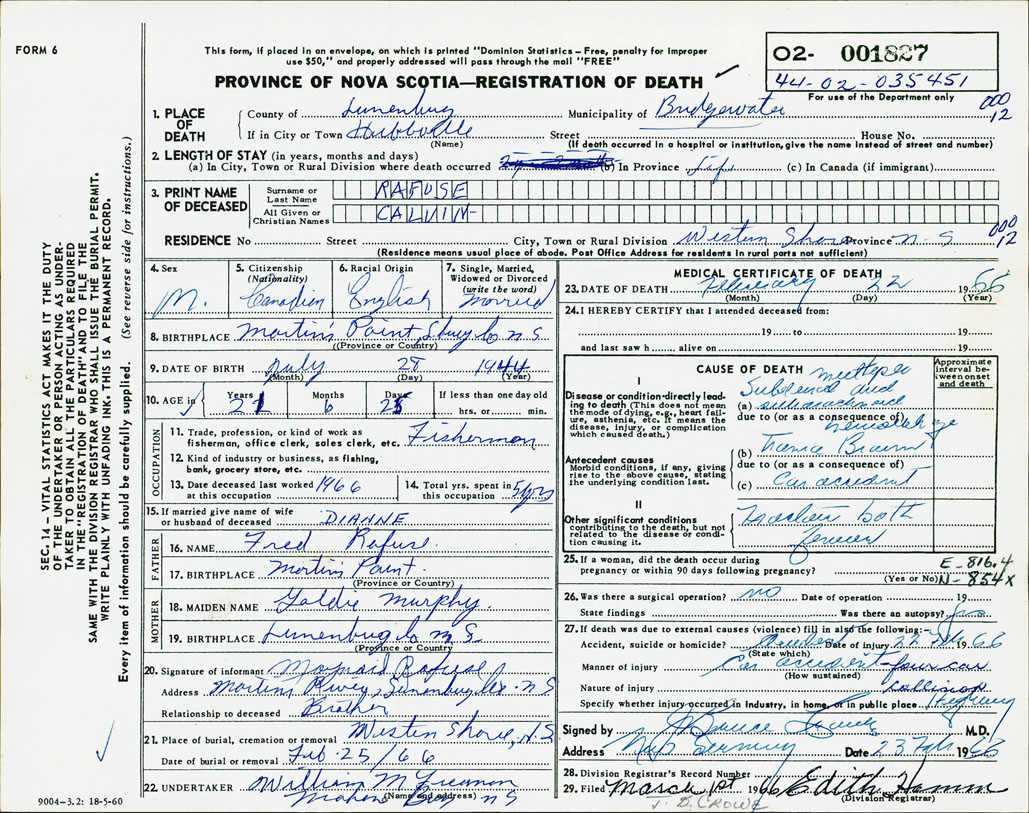 FORM 6
This form, if placed in an envelope, on which is printed "Dominion Statistics – Free, penalty for improper
use $50," and properly addressed will pass through the mail "FREE"
O2- 001827
44-02-035451
For use of the Department only
PROVINCE OF NOVA SCOTIA—REGISTRATION OF DEATH
000
12
1. PLACE OF DEATH County of Lunenburg Municipality of Bridgewater
If in City or Town Hebbville Street House No.
(Name) (If death occurred in a hospital or institution, give the name instead of street and number)
2. LENGTH OF STAY (in years, months and days)
(a) In City, Town or Rural Division where death occurred (b) In Province Life (c) In Canada (if immigrant)
3. PRINT NAME OF DECEASED
Surname or Last Name RAFUSE
All Given or Christian Names CALVIN-
RESIDENCE No Street City, Town or Rural Division Western Shore Province N-S
000
12
(Residence means usual place of abode. Post Office Address for residents in rural parts not sufficient)
4. Sex M.
5. Citizenship (Nationality) Canadian
6. Racial Origin English
7. Single, Married, Widowed or Divorced (write the word) Married
8. BIRTHPLACE Martin's Point, Co N S
(Province or Country)
9. DATE OF BIRTH July 28 1944
(Month) (Day) (Year)
10. AGE in Years 21 Months 6 Days 25 If less than one day old
hrs. or min.
OCCUPATION
11. Trade, profession, or kind of work as
fisherman, office clerk, sales clerk, etc. Fisherman
12. Kind of industry or business, as fishing,
bank, grocery store, etc.
13. Date deceased last worked at this occupation 1966
14. Total yrs. spent in this occupation 5 yrs
15. If married give name of wife
or husband of deceased DIANNE
FATHER
16. NAME Fred Rafuse.
17. BIRTHPLACE Martins Point.
(Province or Country)
MOTHER
18. MAIDEN NAME Goldie Murphy.
19. BIRTHPLACE Lunenburg Co N S
(Province or Country)
20. Signature of informant Maynard Rafuse
Address Martins River, Lunenburg Co. N S
Relationship to deceased Brother
21. Place of burial, cremation or removal Western Shore, N.S
Date of burial or removal Feb 25/66
22 UNDERTAKER William M
(Name and address) Mahone Bay N S
MEDICAL CERTIFICATE OF DEATH
23. DATE OF DEATH February 22 1966
(Month) (Day) (Year)
24. I HEREBY CERTIFY that I attended deceased from:
19 to 19
and last saw h alive on 19
CAUSE OF DEATH
Approximate interval between onset and death
I
Disease or condition directly leading to death (This does not mean the mode of dying, e.g., heart failure, asthenia, etc. It means the disease, injury, or complication which caused death.)
multiple
Subdural and
(a) subarachnoid
due to (or as a consequence of)
hemorrhage
Antecedent causes
Morbid conditions, if any, giving rise to the above cause, stating the underlying condition last.
(b)
due to (or as a consequence of)
(c) Car accident
II
Other significant conditions contributing to the death, but not related to the disease or condition causing it.
both
25. If a woman, did the death occur during
pregnancy or within 90 days following pregnancy?
(Yes or No)
E-816.4
N-854X
26. Was there a surgical operation? no Date of operation 19
State findings Was there an autopsy?
27. If death was due to external causes (violence) fill in also the following:-
Accident, suicide or homicide? Accident Date of injury 22 Feb 1966
(State which)
Manner of injury Car accident - four car
(How sustained)
Nature of injury collision
Specify whether injury occurred in industry, in home, or in public place Highway
Signed by Bruce M.D.
Address Date 23 Feb 1966
28. Division Registrar's Record Number
29. Filed March 1st 1966 Edith Hamm
(Division Registrar)
J. B. CROWE
9004–3.2: 18-5-60
SEC. 14 – VITAL STATISTICS ACT MAKES IT THE DUTY
OF THE UNDERTAKER OR PERSON ACTING AS UNDER-
TAKER TO OBTAIN ALL THE PARTICULARS REQUIRED
IN THE "REGISTRATION OF DEATH" AND TO FILE THE
SAME WITH THE DIVISION REGISTRAR WHO SHALL ISSUE THE BURIAL PERMIT.
WRITE PLAINLY WITH UNFADING INK. THIS IS A PERMANENT RECORD.
Every item of information should be carefully supplied. (See reverse side for instructions.)